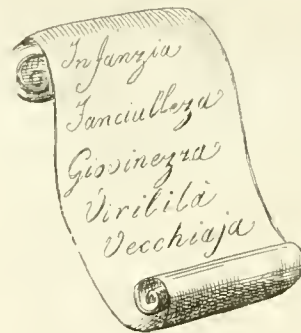 Infanzia
Fanciulleza
Giovinezza
Virilità
Vecchiaja